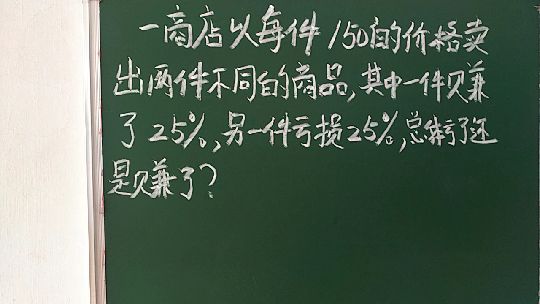 一商店以每件150的价格卖
出两件不同的商品,其中一件赚
了25%,另一件亏损25%,总共亏了还
是赚了?